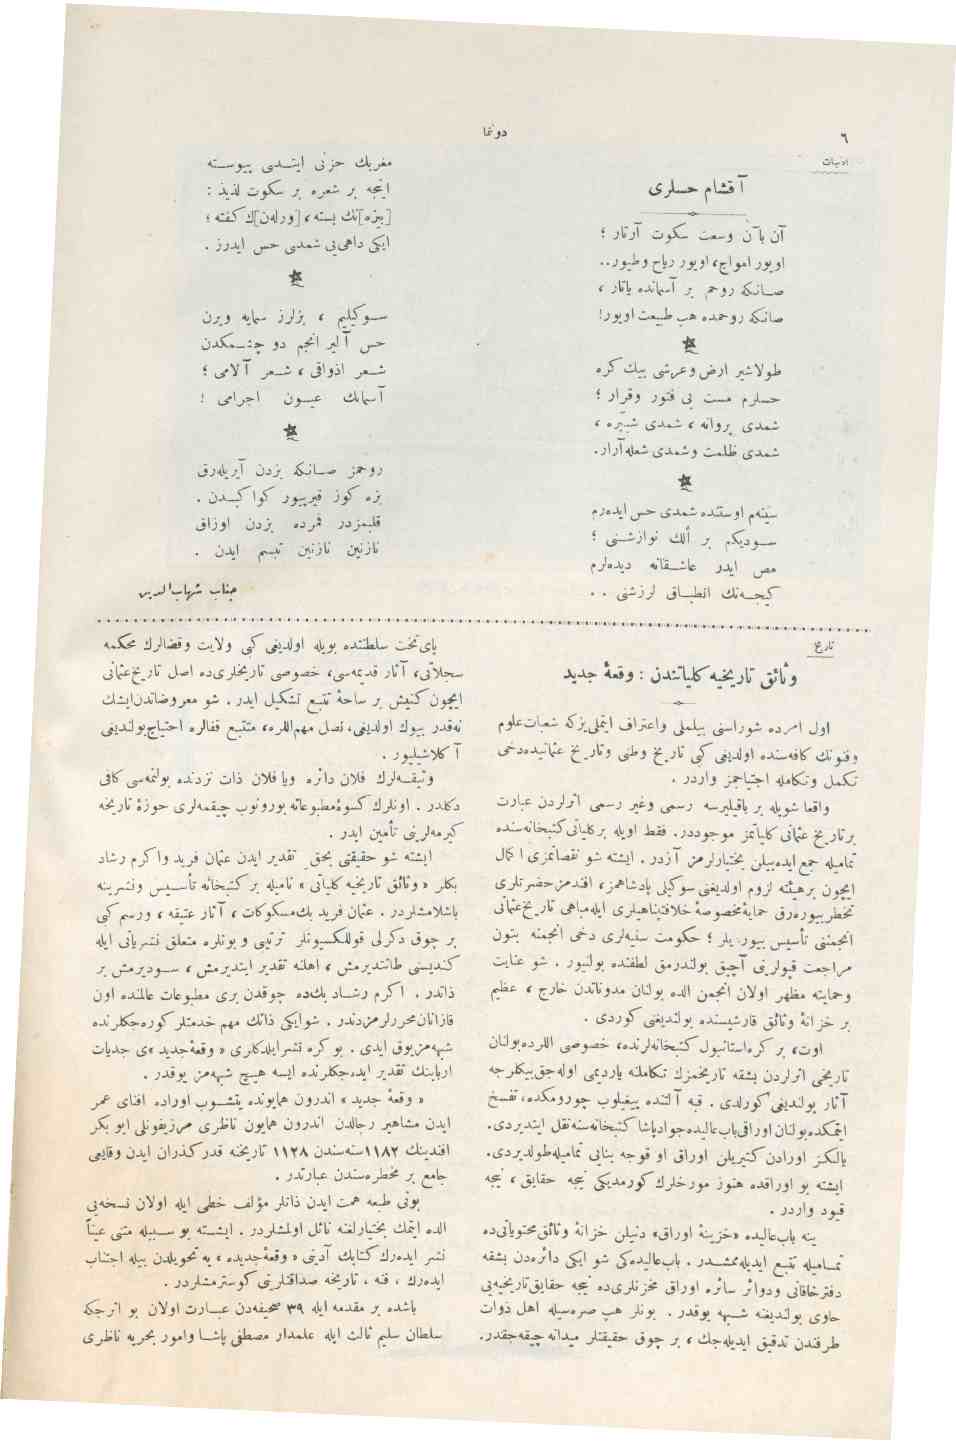 ٦
دونما
ادبيات
آقشام حسلری
آن بآن وسعت سكوت آرتار ؛
اويور امواج، اويور رياح وطيور..
صانكه روحم بر آسمانده ياتار ،
صانكه روحمده هب طبيعت اويور!
طولاشير ارض وعرشی بيك كره
حسلرم مست بی فتور وقرار ؛
شمدی پروانه ، شمدی شبپره ،
شمدی ظلمت وشمدی شعله آرار.
سينه‌م اوستنده شمدی حس ايده‌رم
سوديكم بر ألك نوازشنی ؛
مص ايدر عاشقانه ديده‌لرم
كيجه‌نك انطباق لرزشنی . .
مغربك حزنی ايتدی پيوسته
اينجه بر شعره بر سكوت لذيذ :
[بيزه]نك بسته، [ورلهن]ك كفته ؛
ايكی داهی‌يی شمدی حس ايدرز .
سوكيليم ، بزلرز سمايه ويرن
حس آلير انجم دو چشمكدن
شعر اذواقی ، شعر آلامی ؛
آسمانك عيون اجرامی !
روحمز صانكه بزدن آيريله‌رق
بزه كوز قيرپيور كواكبدن .
قلبمزدر قمرده بزدن اوزاق
نازنين نازنين تبسم ايدن .
جناب شهاب‌الدين
تاريخ
وثائق تاريخيه كلياتندن : وقعهٔ جديد
اول امرده شوراسنی بيلملی واعتراف ايتملی‌يزكه شعبات‌علوم
وفنونك كافه‌سنده اولديغی كبی تاريخ وطنی وتاريخ عثمانيده‌دخی
تكمل وتكامله احتياجمز واردر .
واقعا شويله بر باقيليرسه رسمی وغير رسمی اثرلردن عبارت
برتاريخ عثمانی كلياتمز موجوددر. فقط اويله بركلياتی‌كتبخانه‌سنده
تماميله جمع ايده‌بيلن بختيارلرمز آزدر. ايشته شو نقصانمزی اكمال
ايچون برهيئته لزوم اولديغنی سوكيلی پادشاهمز، افندمز حضرتلری
تخطر بيوره‌رق حمايهٔ مخصوصهٔ خلافتپناهيلری ايله‌مباهی تاريخ‌عثمانی
انجمننی تأسيس بيورديلر ؛ حكومت سنيه‌لری دخی انجمنه بتون
مراجعت قپولرينی آچيق بولندرمق لطفنده بولنيور. شو عنايت
وحمايته مظهر اولان انجمن الده بولنان مدوناتدن خارج ، عظيم
بر خزانهٔ وثائق قارشيسنده بولنديغنی كوردی .
اوت، بر كره‌استانبول كتبخانه‌لرنده، خصوصی اللرده‌بولنان
تاريخی اثرلردن بشقه تاريخمزك تكاملنه ياردیمی اوله‌جق‌بيكلرجه
آثار بولنديغی كورلدی . قبه آلتنده ييغيلوب چورومكده، تفسخ
ايتمكده‌بولنان اوراقی‌باب‌عاليده‌جوادپاشا كتبخانه‌سنه‌نقل ايتديردی.
يالكز اورادن كتيريلن اوراق او قوجه بنايی تماميله‌طولديردی.
ايشته بو اوراقده هنوز مورخلرك كورمديكی نيجه حقايق ، نيجه
قيود واردر .
ينه باب‌عاليده «خزينهٔ اوراق» دنيلن خزانهٔ وثائق محتوياتی‌ده
تماميله تتبع ايديله‌مه‌مشدر. باب‌عاليده‌كی شو ايكی دائره‌دن بشقه
دفترخاقانی ودوائر سائره اوراق مخزنلری‌ده نيجه حقايق‌تاريخيه‌يی
حاوی بولنديغنه شبهه يوقدر . بونلر هپ صره‌سيله اهل ذوات
طرفندن تدقيق ايديله‌جك ، بر چوق حقيقتلر ميدانه چيقه‌جقدر.
پای‌تخت سلطنتده بويله اولديغی كبی ولايت وقضالرك محكمه
سجلاتی، آثار قديمه‌سی، خصوصی تاريخلری‌ده اصل تاريخ‌عثمانی
ايچون كنيش بر ساحهٔ تتبع تشكيل ايدر. شو معروضاتدن‌ايشك
نه‌قدر بيوك اولديغی، نصل مهم‌اللره، متتبع قفالره احتياج‌بولنديغی
آكلاشيليور .
وثيقه‌لرك فلان دائره ويا فلان ذات نزدنده بولنمه‌سی كافی
دكلدر. اونلرك كسوهٔ مطبوعاته بورونوب چيقمه‌لری حوزهٔ تاريخه
كيرمه‌لرينی تأمين ايدر .
ايشته شو حقيقتی بحق تقدير ايدن عثمان فريد واكرم رشاد
بكلر «وثائق تاريخيه كلياتی» ناميله بر كتبخانه تأسيس ونشرينه
باشلامشلردر. عثمان فريد بك‌مسكوكات ، آثار عتيقه ، ورسم كبی
بر چوق دكرلی قوللكسيونلر ترتيبی وبونلره متعلق نشرياتی ايله
كنديسنی طانتديرمش ، اهلنه تقدير ايتديرمش ، سوديرمش بر
ذاتدر. اكرم رشاد بك‌ده چوقدن بری مطبوعات عالمنده اون
قازانان‌محررلرمزدندر. شوايكی ذاتك مهم خدمتلر كوره‌جكلرنده
شبهه‌مزيوق ايدی. بو كره نشرايلدكلری « وقعهٔ جديد »ی جديات
اربابنك تقدير ايده‌جكلرنده ايسه هيچ شبهه‌مز يوقدر .
« وقعهٔ جديد » اندرون همايونده يتشوب اوراده افنای عمر
ايدن مشاهير رجالدن اندرون همايون ناظری مرزيفونلی ابو بكر
افندينك ١١٨٢سنه‌سندن ١١٢٨ تاريخنه قدر كذران ايدن وقايعی
جامع بر مخطره‌سندن عبارتدر .
بونی طبعه همت ايدن ذاتلر مؤلف خطی ايله اولان نسخه‌يی
الده ايتمك بختيارلغنه نائل اولمشلردر. ايشته بو سببله متنی عيناً
نشر ايده‌رك كتابك آدينی « وقعهٔ جديده » يه تحويلدن بيله اجتناب
ايده‌رك ، فنه ، تاريخه صداقتلرينی كوسترمشلردر .
باشده بر مقدمه ايله ٣٩ صحيفه‌دن عبارت اولان بو اثرجكه
سلطان سليم ثالث ايله علمدار مصطفی پاشا وامور بحريه ناظری